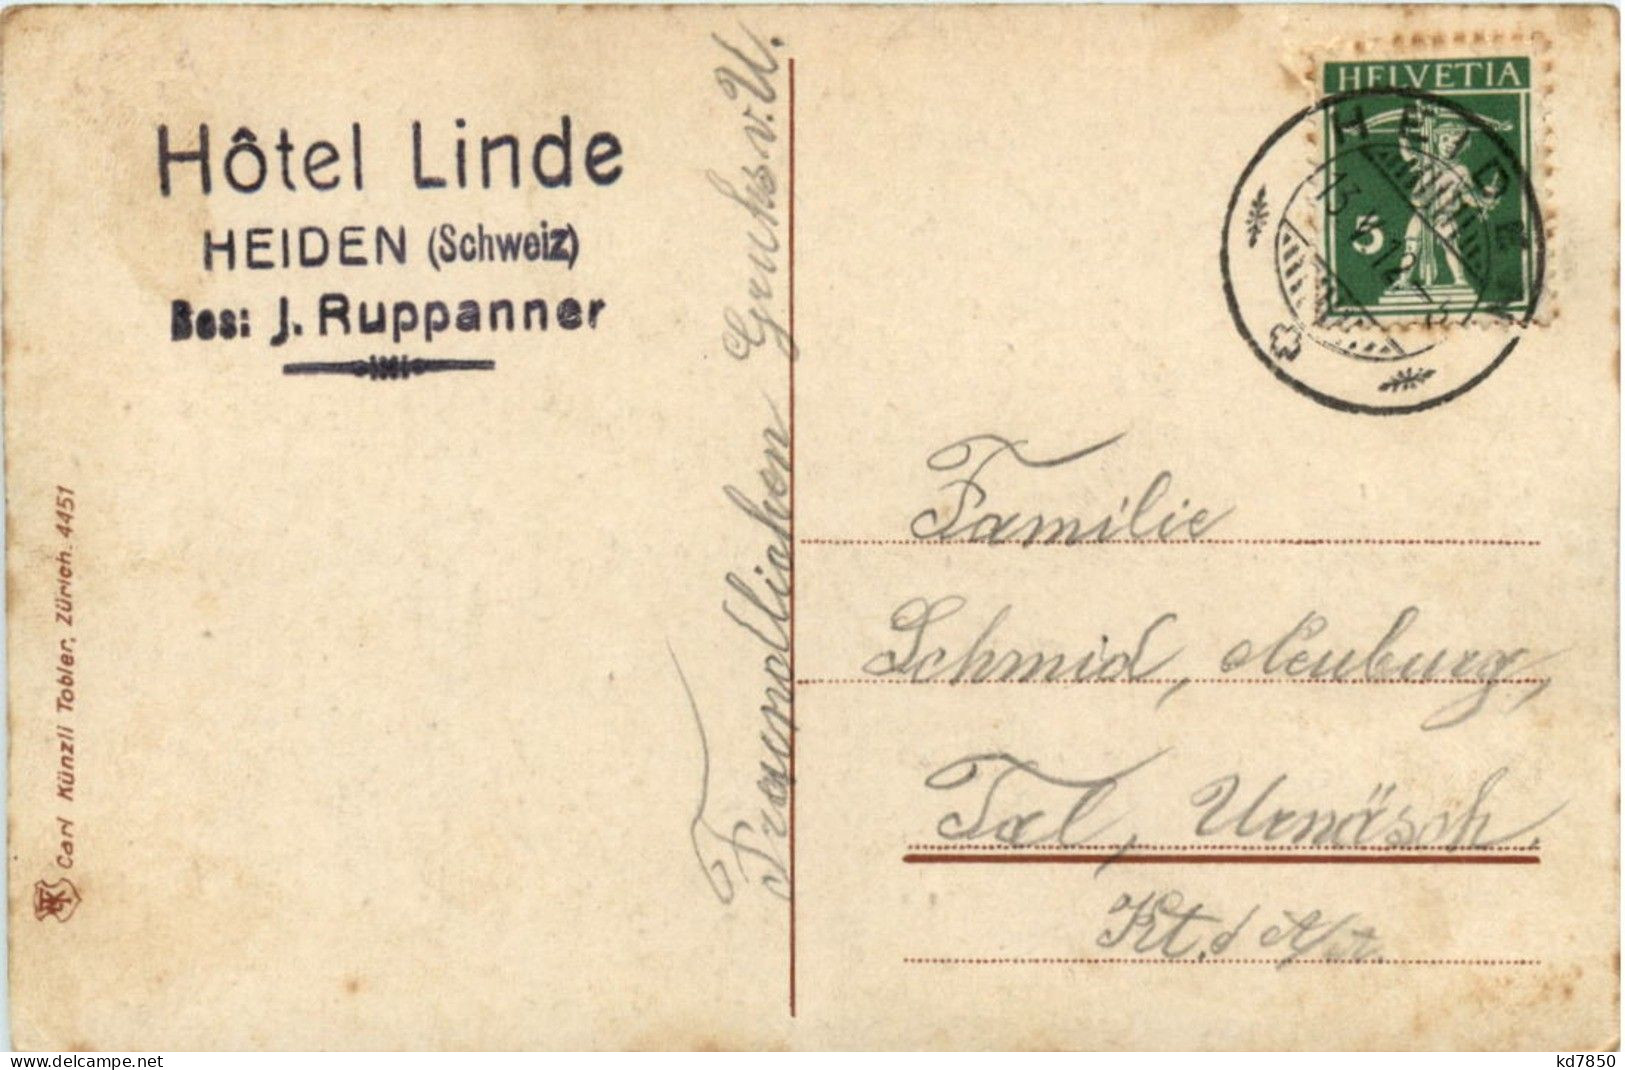 Hôtel Linde
HEIDEN (Schweiz)
Bes: J. Ruppanner
Carl Künzli Tobler, Zürich. 4451
Freundlichen Gruss v. U.
HELVETIA
5
HEIDEN
13. 12
Familie
Schmid, Neuburg,
Tal, Urnäsch.
Kt.
kd7850